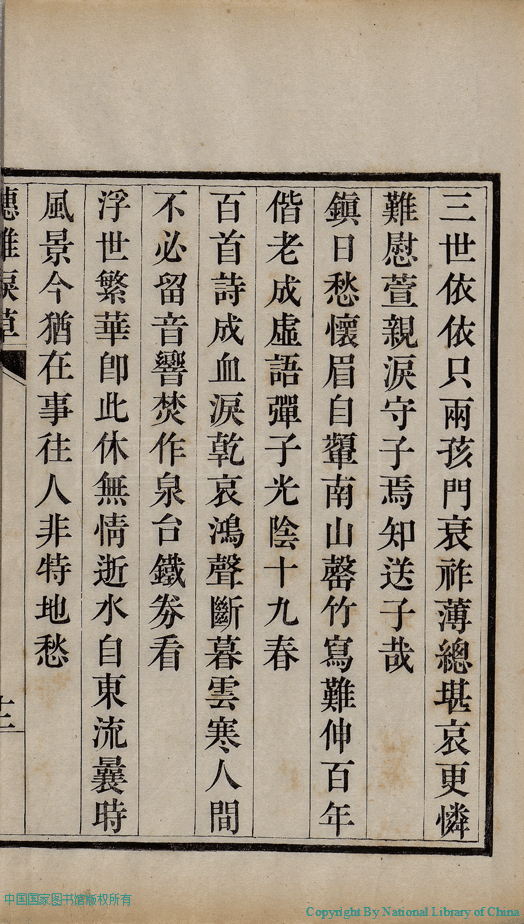 三世依依只兩孩門衰祚薄總堪哀更憐
難慰萱親淚守子焉知送子哉
鎮日愁懷眉自顰南山罄竹寫難伸百年
偕老成虛語彈子光陰十九春
百首詩成血淚乾哀鴻聲斷暮雲寒人間
不必留音響焚作泉台鐵劵看
浮世繁華卽此休無情逝水自東流曩時
風景今猶在事往人非特地愁
中国国家图书馆版权所有
Copyright By National Library of China